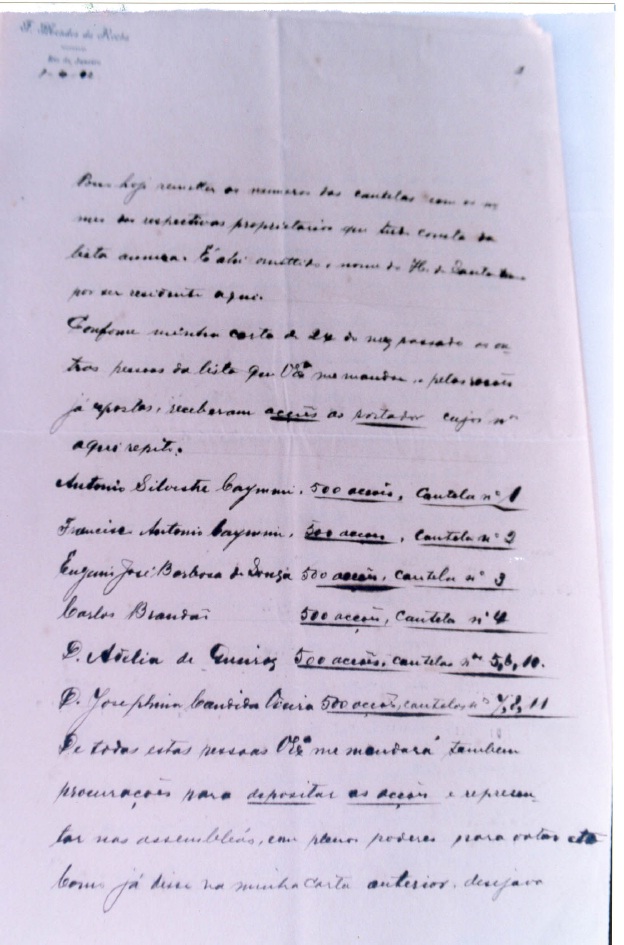 F. Mendes da Rocha
Rio de Janeiro
hoje remetter os numeros das cautelas com os no-
mes dos respectivos proprietarios que tudo consta da
lista annexa. É ahi omittido o nome do H. de Santa
por ser residente aqui.
Conforme minha carta de 24 do mez passado as ou-
tras pessoas da lista que VExª me mandou e pelas rasões
já expostas, receberam acções ao portador cujos nºs
aqui repito.
Antonio Silvestre Caymmi, 500 acções, Cautela nº 1
Francisco Antonio Caymmi, 500 acções, Cautela nº 2
Eugenio José Barbosa de Souza 500 acções, cautela nº 3
Carlos Brandão 500 acções, Cautela nº 4
D. Adelia de Queiroz 500 acções, cautelas nºs 5, 6, 10.
D. Josephina Candida Vieira 500 acções, cautelas nºs 7, 8, 11
De todas estas pessoas VExª me mandará tambem
procurações para depositar as acções e represen-
tar nas assembléas, com plenos poderes para votar etc
Como já disse na minha carta anterior, desejava